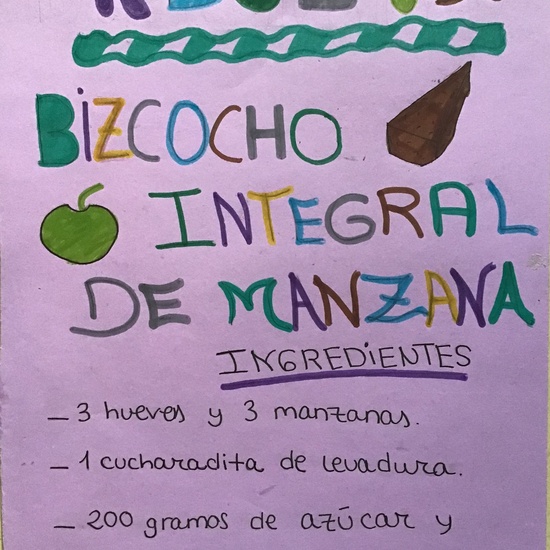 BiZCOCHO
INTEGRAL
DE MANZANA
INGREDiENTES
_ 3 huevos y 3 manzanas.
_ 1 cucharadita de levadura.
_ 200 gramos de azúcar y